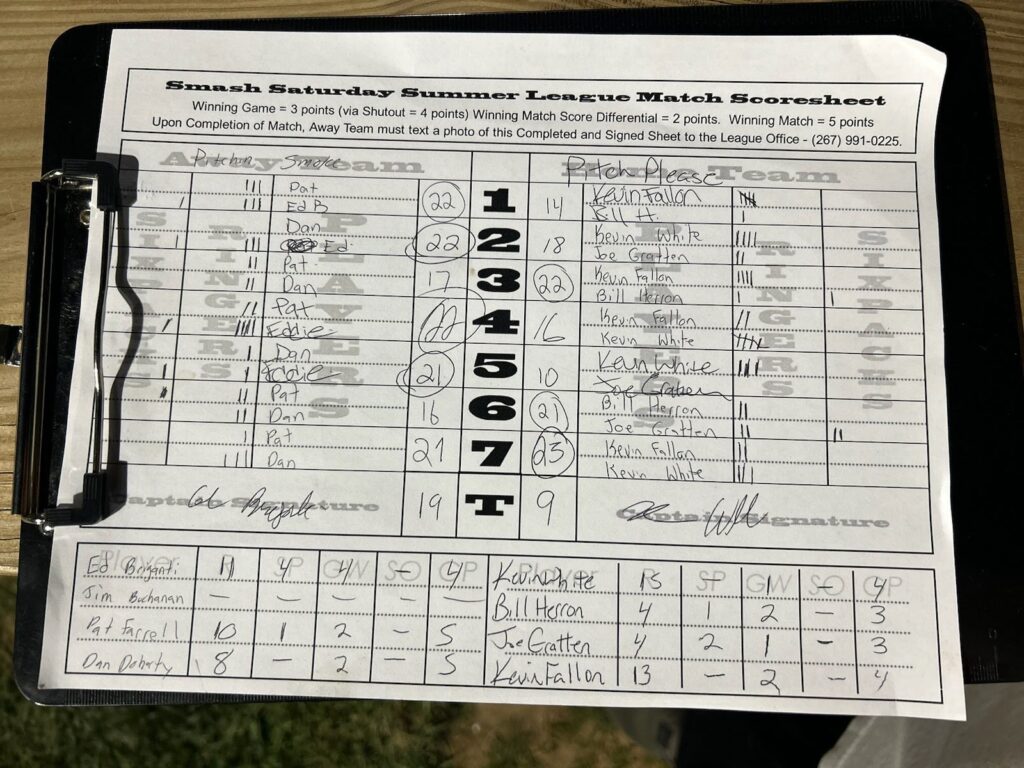 Smash Saturday Summer League Match Scoresheet
Winning Game = 3 points (via Shutout = 4 points) Winning Match Score Differential = 2 points. Winning Match = 5 points
Upon Completion of Match, Away Team must text a photo of this Completed and Signed Sheet to the League Office - (267) 991-0225.
Away Team Pitchin Smoke
Team Pitch Please
SIXPACKS RINGERS PLAYERS
PLAYERS RINGERS SIXPACKS
||| Pat 22 1 14 Kevin Fallon ||||
| ||| Ed B Bill H. |
Dan 22 2 18 Kevin White ||||
| ||| Ed Joe Gratten ||
|| Pat 17 3 22 Kevin Fallon ||||
|| Dan Bill Herron | |
|| Pat 22 4 16 Kevin Fallon ||
| Eddie Kevin White
| Dan 21 5 10 Kevin White
| | Eddie Joe Gratten
|| Pat 16 6 21 Bill Herron ||
|| Dan Joe Gratten || ||
| Pat 21 7 23 Kevin Fallon ||
|||| Dan Kevin White |||
Captain Signature 19 T 9 Captain Signature
Player R SP GW SO GP Player R SP GW SO GP
Ed Briganti 11 4 4 – 4 Kevin White 15 – 1 – 4
Jim Buchanan – – – – – Bill Herron 4 1 2 – 3
Pat Farrell 10 1 2 – 5 Joe Gratten 4 2 1 – 3
Dan Doharty 8 – 2 – 5 Kevin Fallon 13 – 2 – 4